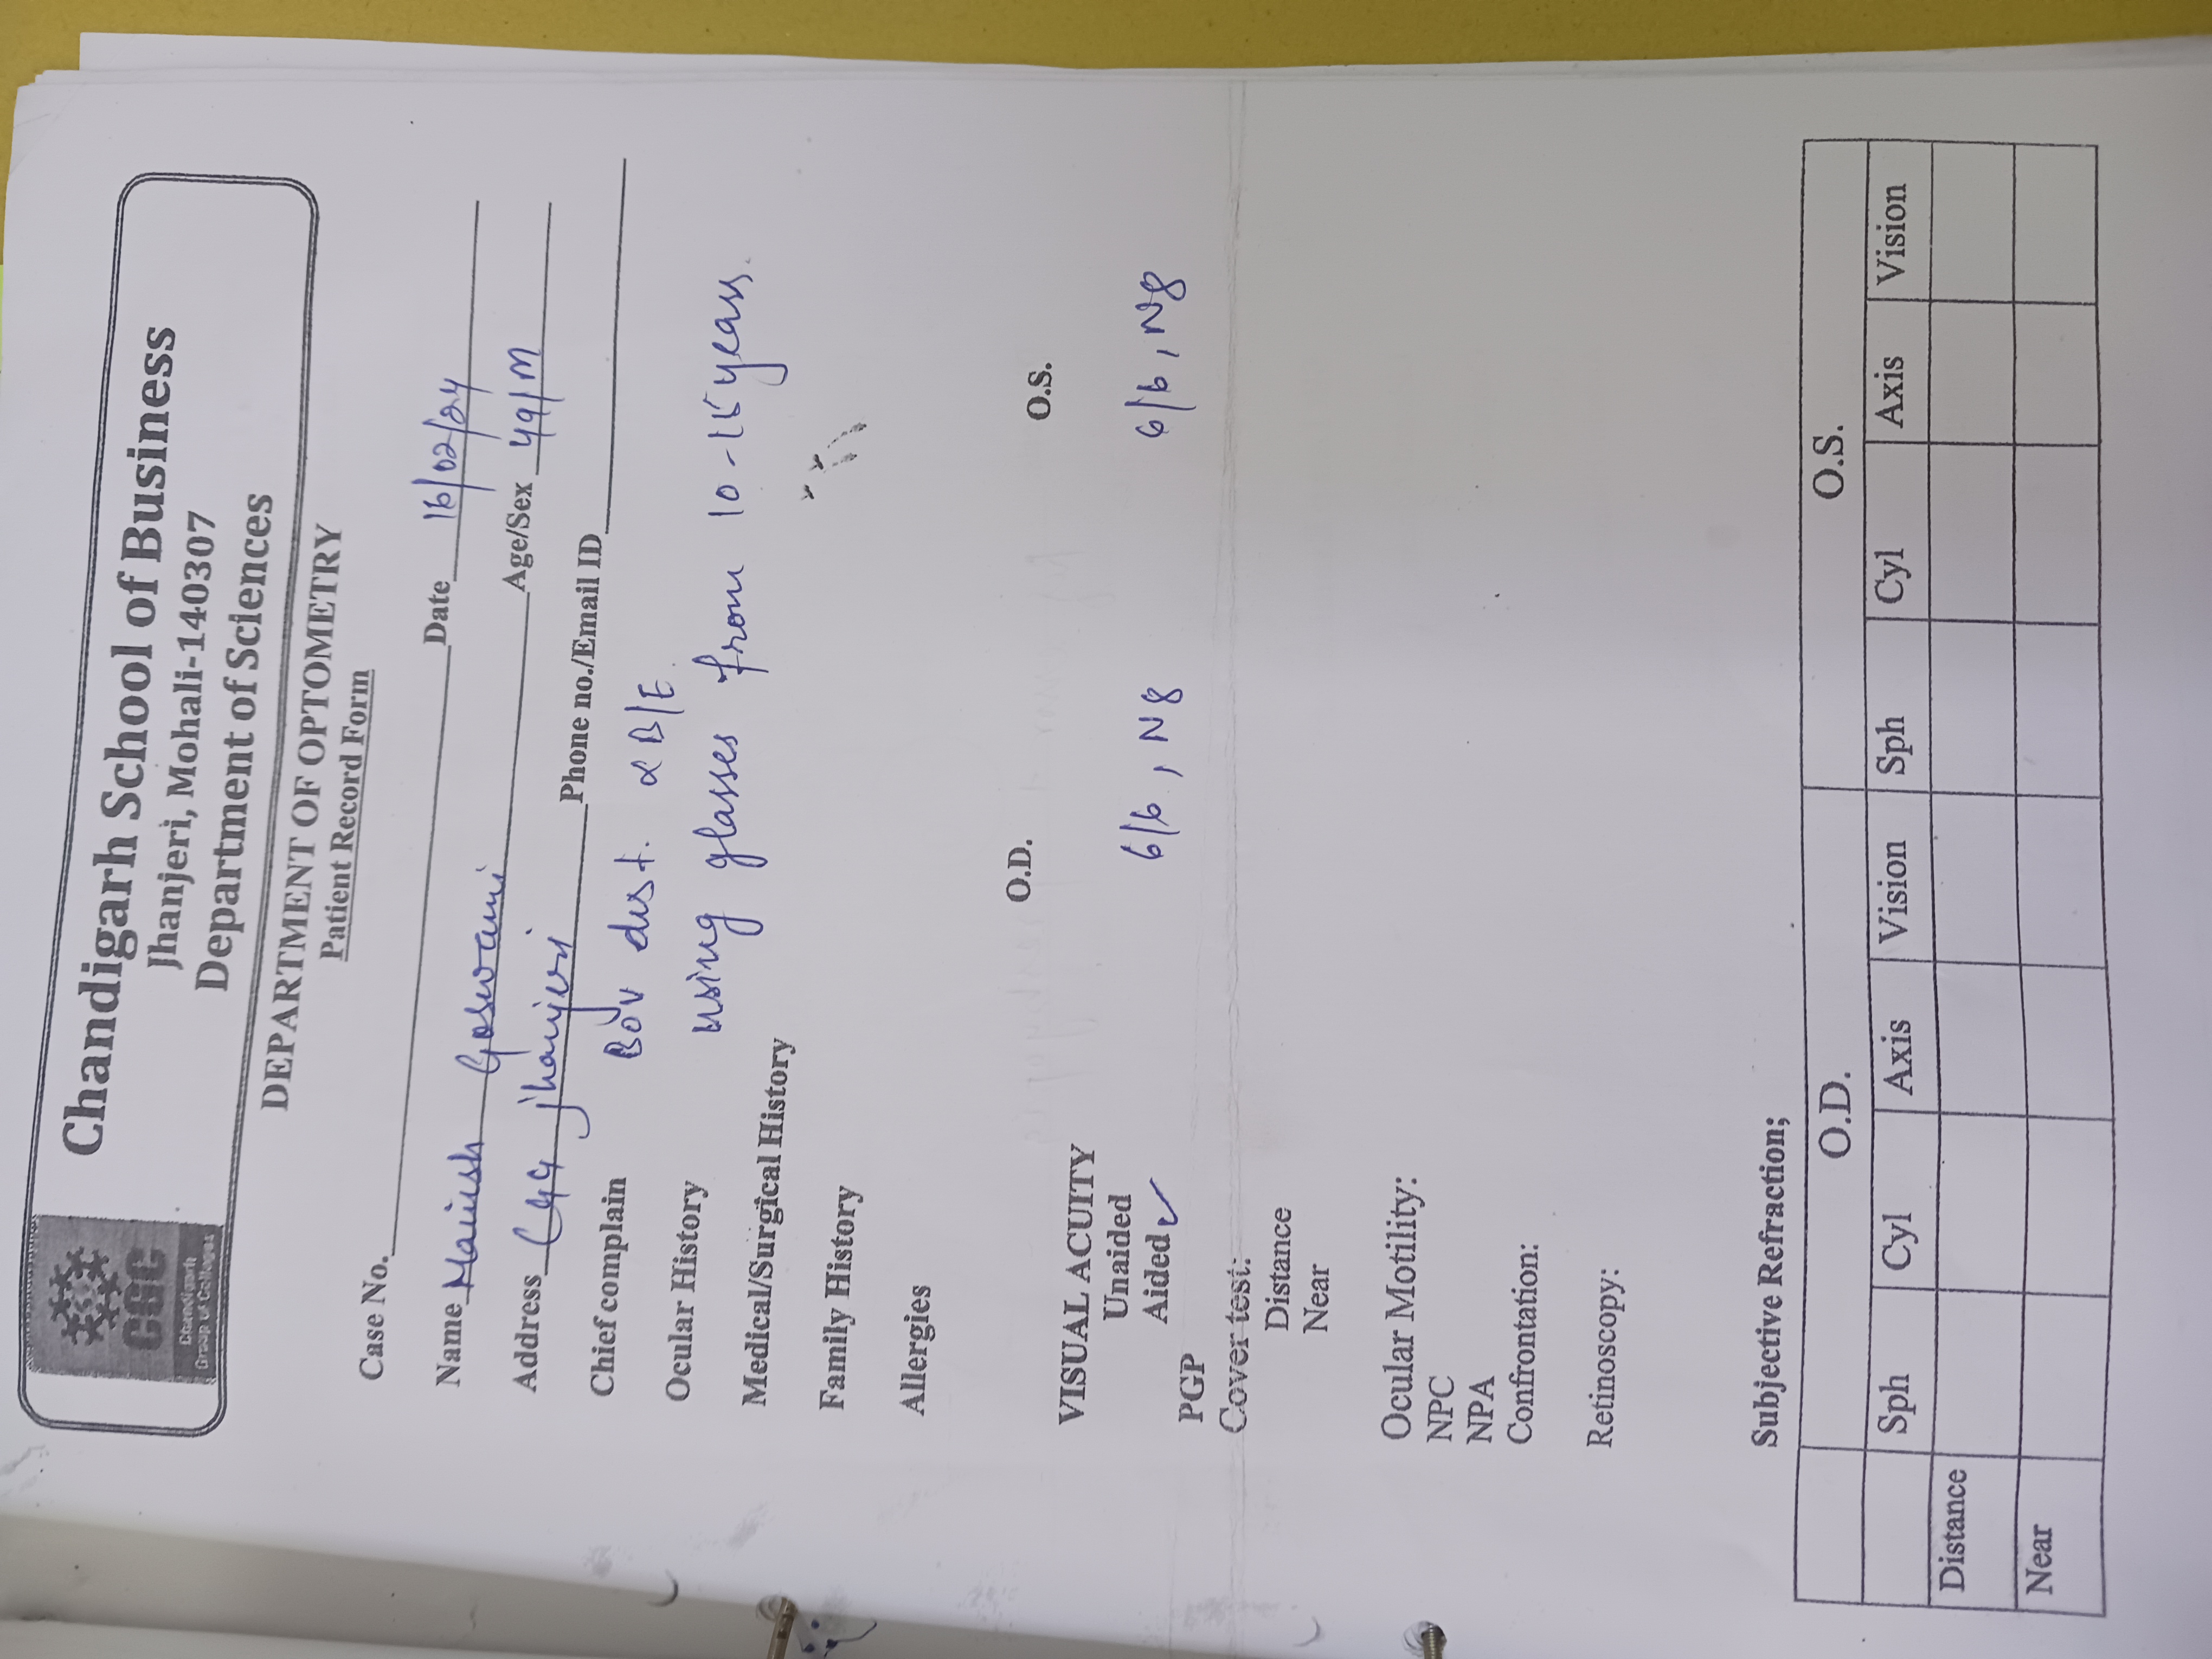 CGC
Chandigarh
Group of Colleges
Chandigarh School of Business
Jhanjeri, Mohali-140307
Department of Sciences
DEPARTMENT OF OPTOMETRY
Patient Record Form
Case No.
Date 16/02/24
Name Manish Goswami
Age/Sex 49/M
Address CGC Jhanjeri Phone no./Email ID
Chief complain BOV dist. B/E.
Ocular History using glasses from 10-15 years.
Medical/Surgical History
Family History
Allergies
O.D. O.S.
VISUAL ACUITY
Unaided
Aided ✓ 6/6, N8 6/6, N8
PGP
Cover test:
Distance
Near
Ocular Motility:
NPC
NPA
Confrontation:
Retinoscopy:
Subjective Refraction;
O.D. O.S.
Sph Cyl Axis Vision Sph Cyl Axis Vision
Distance
Near